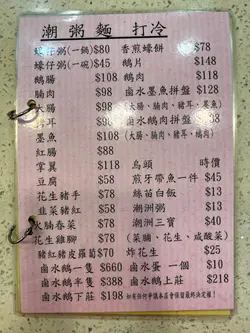 潮 粥 麵 打冷
蠔仔粥(一鍋)$80 香煎蠔餅 $78
蠔仔粥(一碗)$45 鵝片 $148
鵝腸 $108 鵝肉 $118
腩肉 $98 鹵水墨魚拼盤 $128
大腸 $98 (大腸、腩肉、豬耳、墨魚)
豬耳 $98 鹵水鵝肉拼盤 $128
墨魚 $108 (大腸、腩肉、豬耳、鵝肉)
紅腸 $88
掌翼 $118 烏頭 時價
豆腐 $58 煎牙帶魚一件 $45
花生豬手 $78 絲苗白飯 $13
韮菜豬紅 $58 潮洲粥 $13
火腩春菜 $78 潮洲三寶 $40
花生雞腳 $78 (菜脯、花生、咸酸菜)
豬紅豬皮蘿蔔$70 炸花生 $25
鹵水鵝一隻 $660 鹵水蛋 一個 $10
鹵水鵝半隻 $388 鹵水鵝上莊 $218
鹵水鵝下莊 $198 如有任何爭議本店會保留最終決定權!